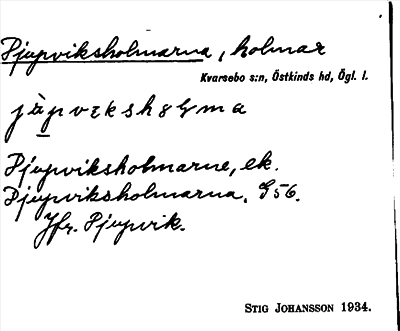 Pjupviksholmarna, holmar
Kvarsebo s:n, Östkinds hd, Ögl. l.
Pjupviksholmarne, ek.
Pjupviksholmarna, G 56.
Jfr. Pjupvik.
STIG JOHANSSON 1934.